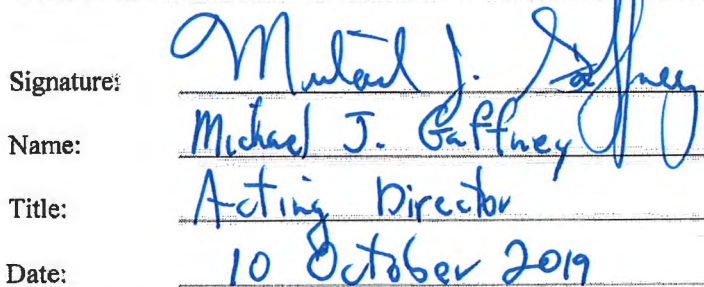 Signature: Michael J. Gaffney
Name: Michael J. Gaffney
Title: Acting Director
Date: 10 October 2019